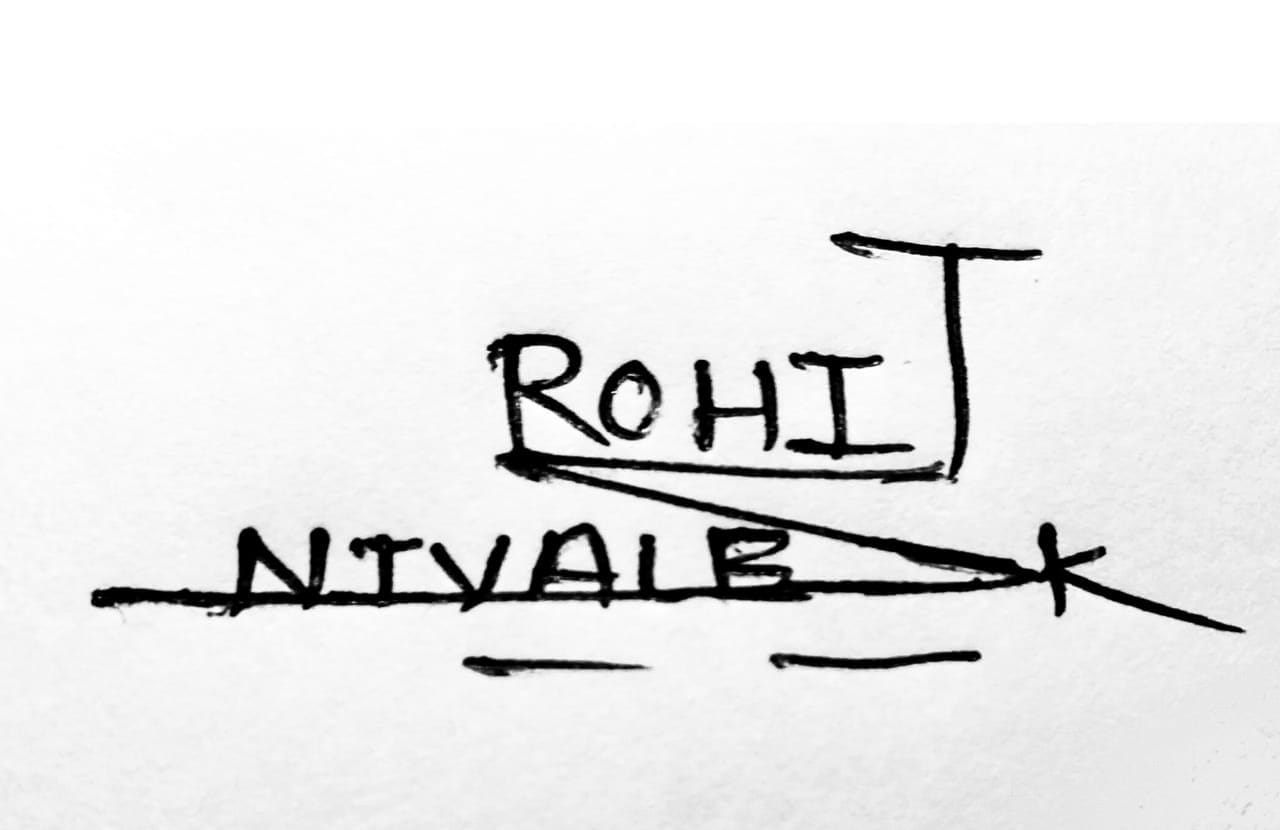 ROHIT
NIVALE